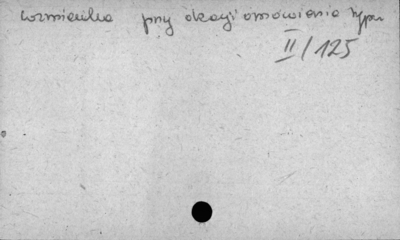 wzmianka przy okazji omówienia typu
II/125